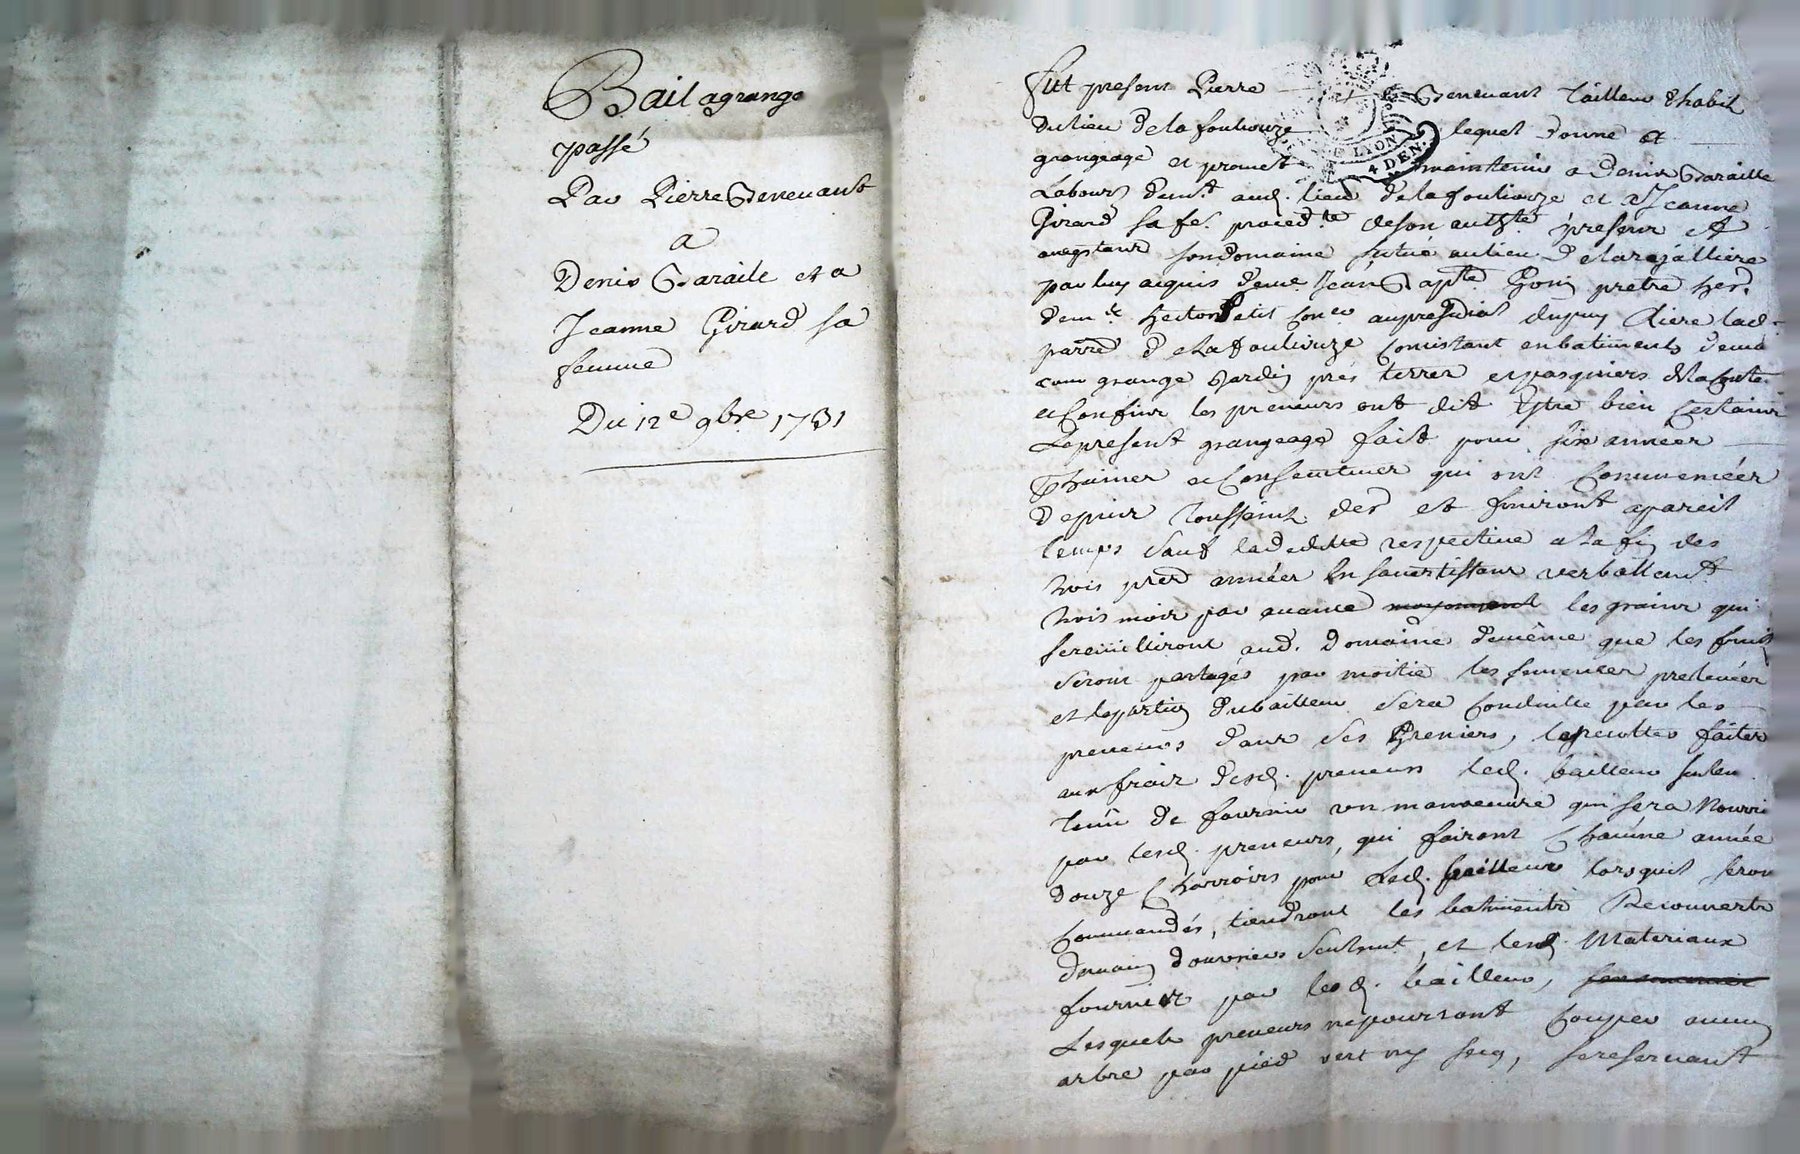 Bail agrange
passé
Par Pierre Genevant
a
Denis Baraille et a
Jeanne Girard sa
femme
Du 12e 9bre 1731
Fut present Pierre Genevant Tailleur d'habit
du lieu de la fouliouze lequel donne a
grangeage et promet maintenir a Denis Baraille
Labourr demt. aud. lieu de la fouliouze et a Jeanne
Girard sa fe. proced.te de son auth.té présent et
aceptant son domaine situé au lieu de
par luy acquis de me. Jean Bapte. prêtre her.
de me. hector petit au presidial
parr. de la fouliouze Consistant en batiments
cour grange Jardin prés terres et pasquiers de la Conte.
et Confins les preneurs ont dit Estre bien Certains
Le present grangeage fait pour six années
et Consecutives qui ont Commencées
depuis Toussaint der. et finiront a pareil
temps sauf la deditte respective a la fin des
trois pres. années En s'avertissant verballem.t
trois mois par avance moyennant les grains qui
se reuilliront aud. domaine de même que les fruits
seront partagés par moitié les semences prelevées
et la portion du bailleur sera Conduitte par les
preneurs dans ses Greniers, les recoltes faites
aux frais desd. preneurs led. bailleur seulem.
tenu de fournir un manoeuvre qui sera Nourri
par lesd. preneurs, qui fairont Chacune année
douze Charrois pour Led. bailleur lorsquil seront
Commandés, tiendront les batiments Recouverts
de main d'ouvriers seulment, et lesd. Materiaux
fournis par led. bailleur,
Lesquels preneurs ne pourront Couper aucun
arbre par pied vert ny secq, se reservant
LYON
4 DEN.